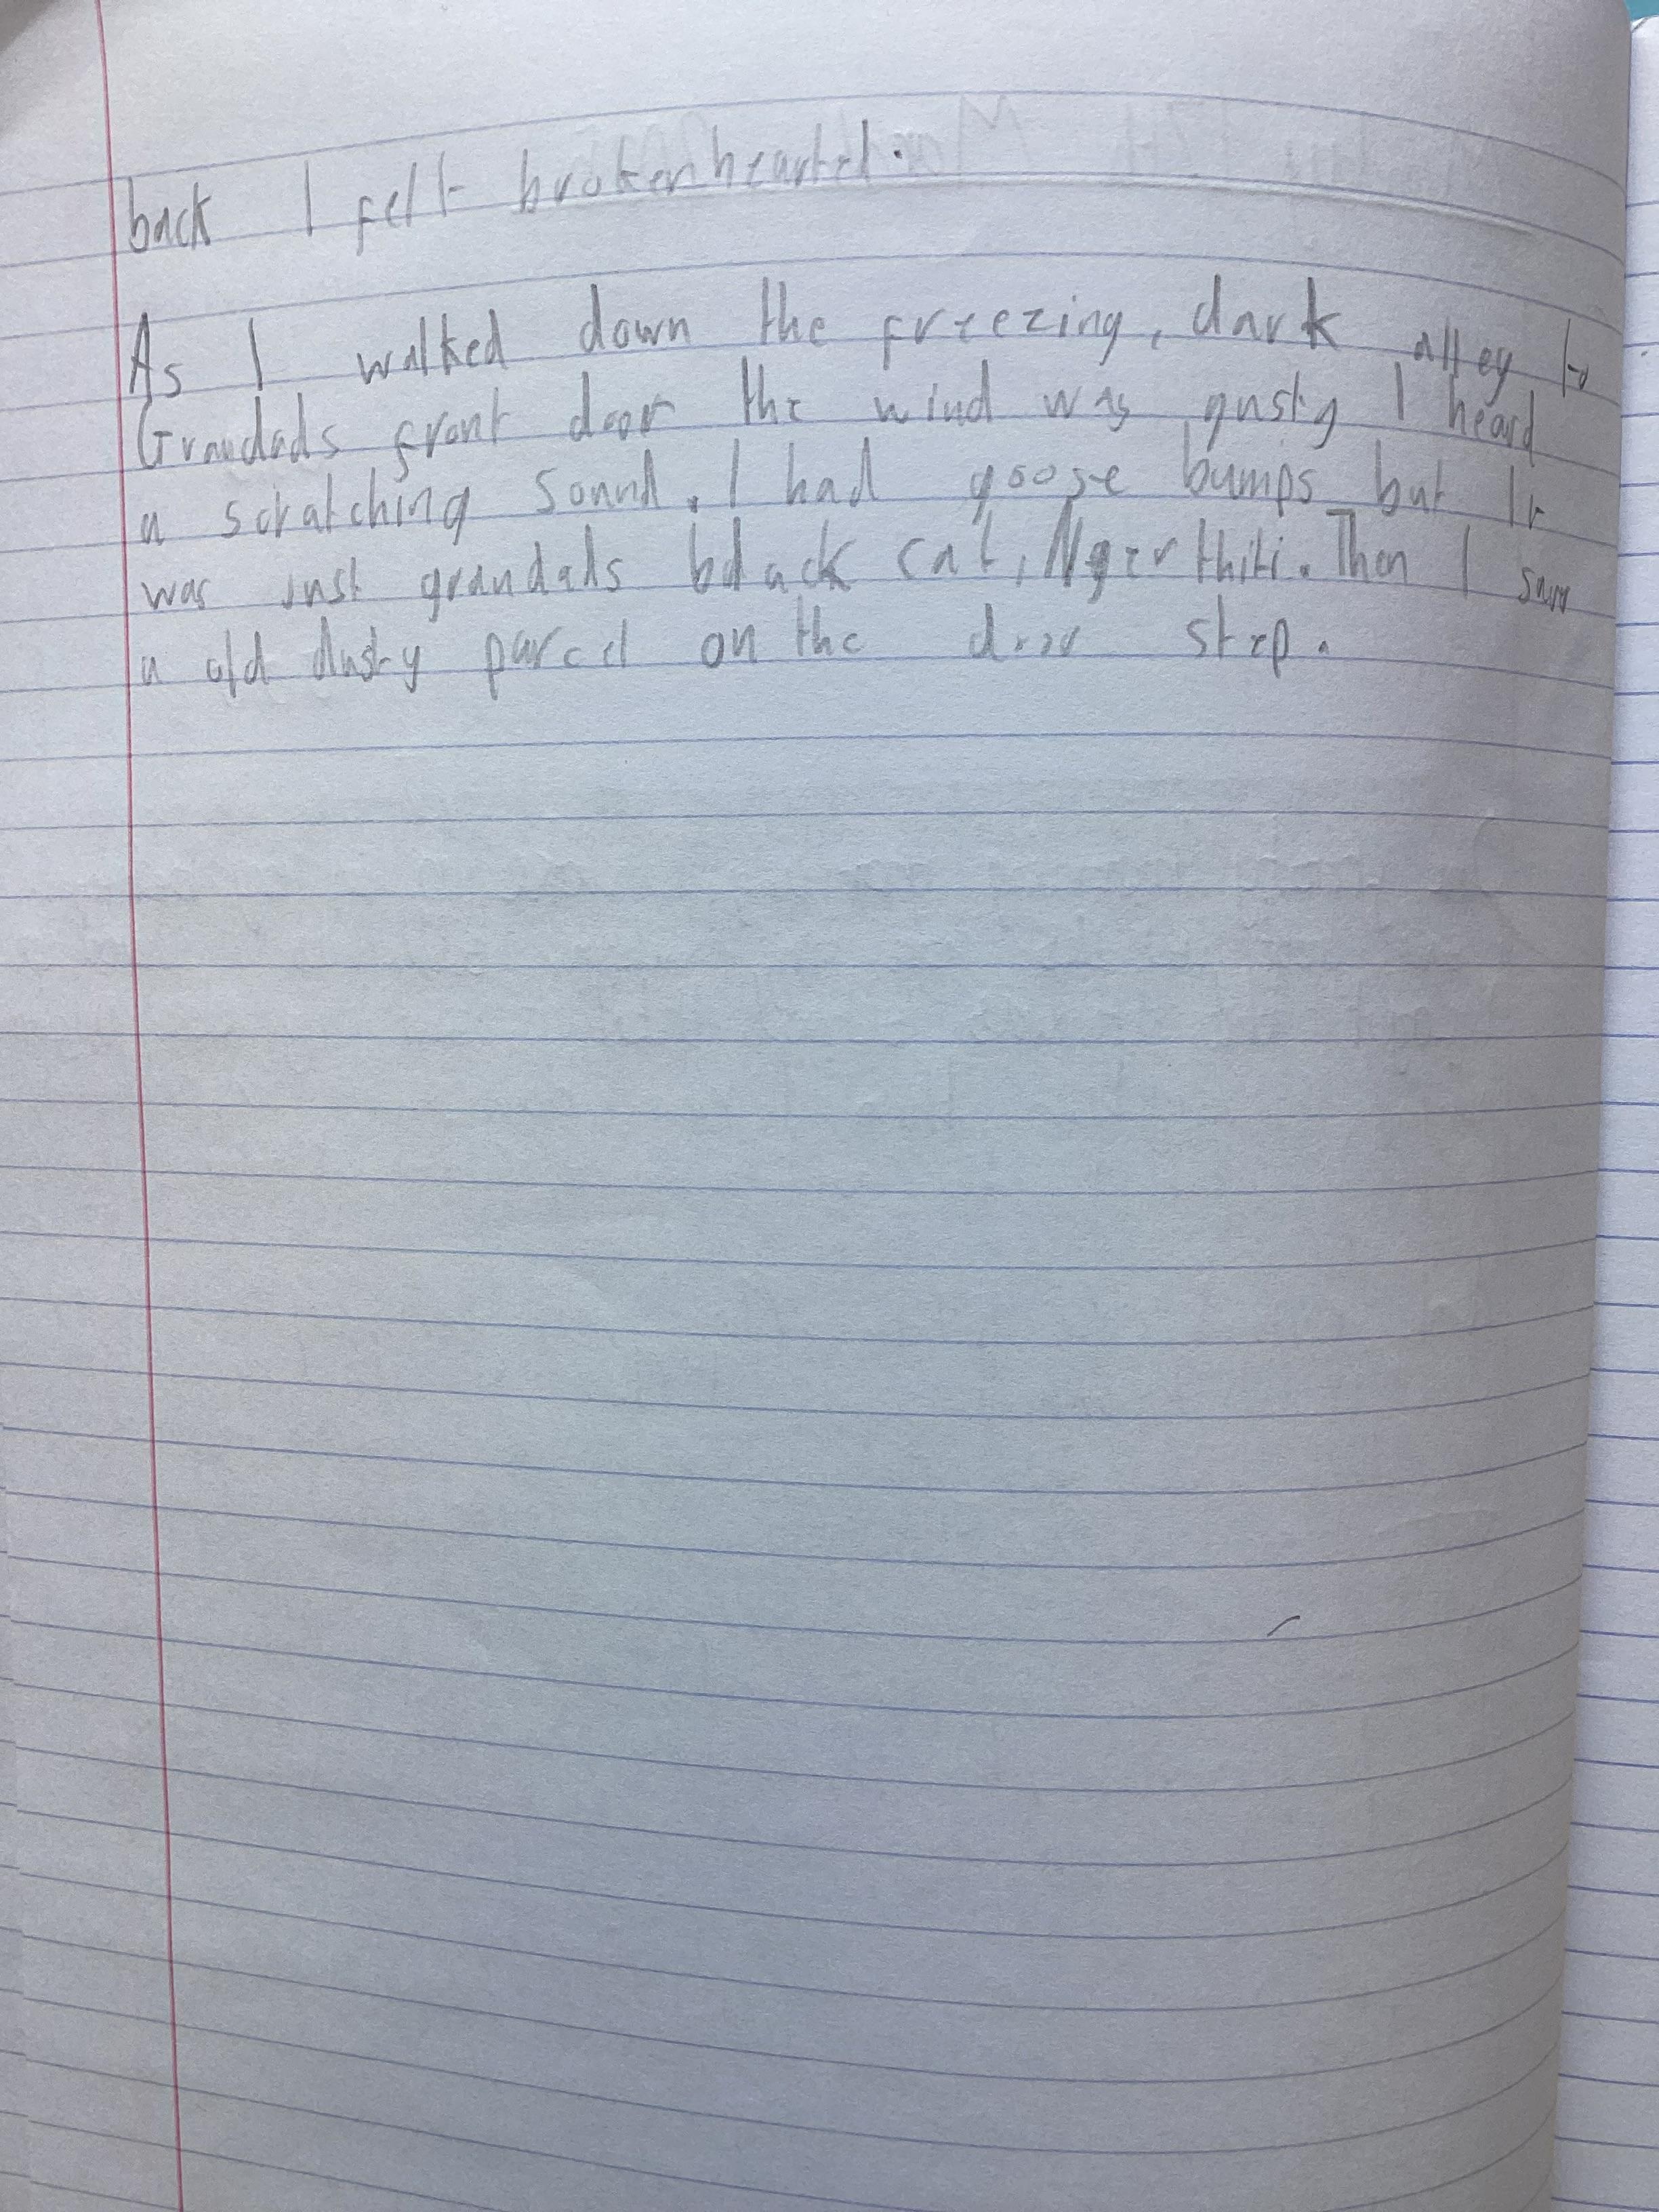 back I felt brokenhearted.
As I walked down the freezing, dark alley to
Grandads front door the wind was gusty I heard
a scratching sound. I had goose bumps but It
was just grandads black cat, Then I saw
a old dusty parcel on the door step.